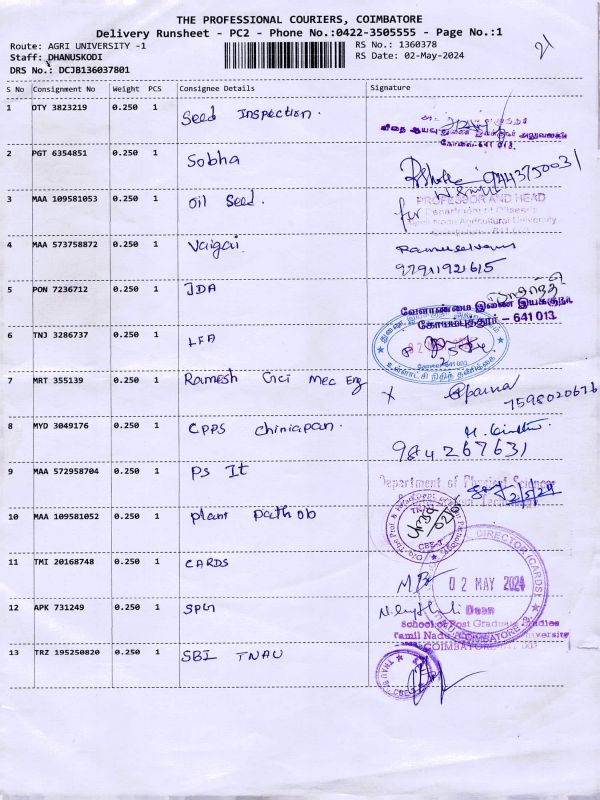 THE PROFESSIONAL COURIERS, COIMBATORE
Delivery Runsheet - PC2 - Phone No.:0422-3505555 - Page No.:1
Route: AGRI UNIVERSITY -1
RS No.: 1360378
21
Staff: DHANUSKODI
RS Date: 02-May-2024
DRS No.: DCJB136037801
S No Consignment No Weight PCS Consignee Details Signature
1 DTY 3823219 0.250 1 Seed Inspection.
கோவை-641 013.
2 PGT 6354851 0.250 1 Sobha
9443750031
3 MAA 109581053 0.250 1 Oil Seed.
for PROFESSOR AND HEAD
Department of Oilseeds
Tamil Nadu Agricultural University
4 MAA 573758872 0.250 1 Vaigai
9791192615
5 PON 7236712 0.250 1 JDA
வேளாண்மை இணை இயக்குநர்
கோயமுத்தூர் – 641 013
6 TNJ 3286737 0.250 1 LFA
உள்ளாட்சி நிதித் தணிக்கை
7 MRT 355139 0.250 1 Ramesh Mec Eng
X
7598020676
8 MYD 3049176 0.250 1 CPPS
984267631
9 MAA 572958704 0.250 1 PS It
Department of Physical Science
2/5/24
10 MAA 109581052 0.250 1 plant path ob
CBE-3
11 TMI 20168748 0.250 1 CARDS
DIRECTOR (CARDS)
02 MAY 2024
TNAU, COIMBATORE-3.
12 APK 731249 0.250 1 SPGS
Dean
School of Post Graduate Studies
Tamil Nadu Agricultural University
COIMBATORE
13 TRZ 195250820 0.250 1 SBI TNAU